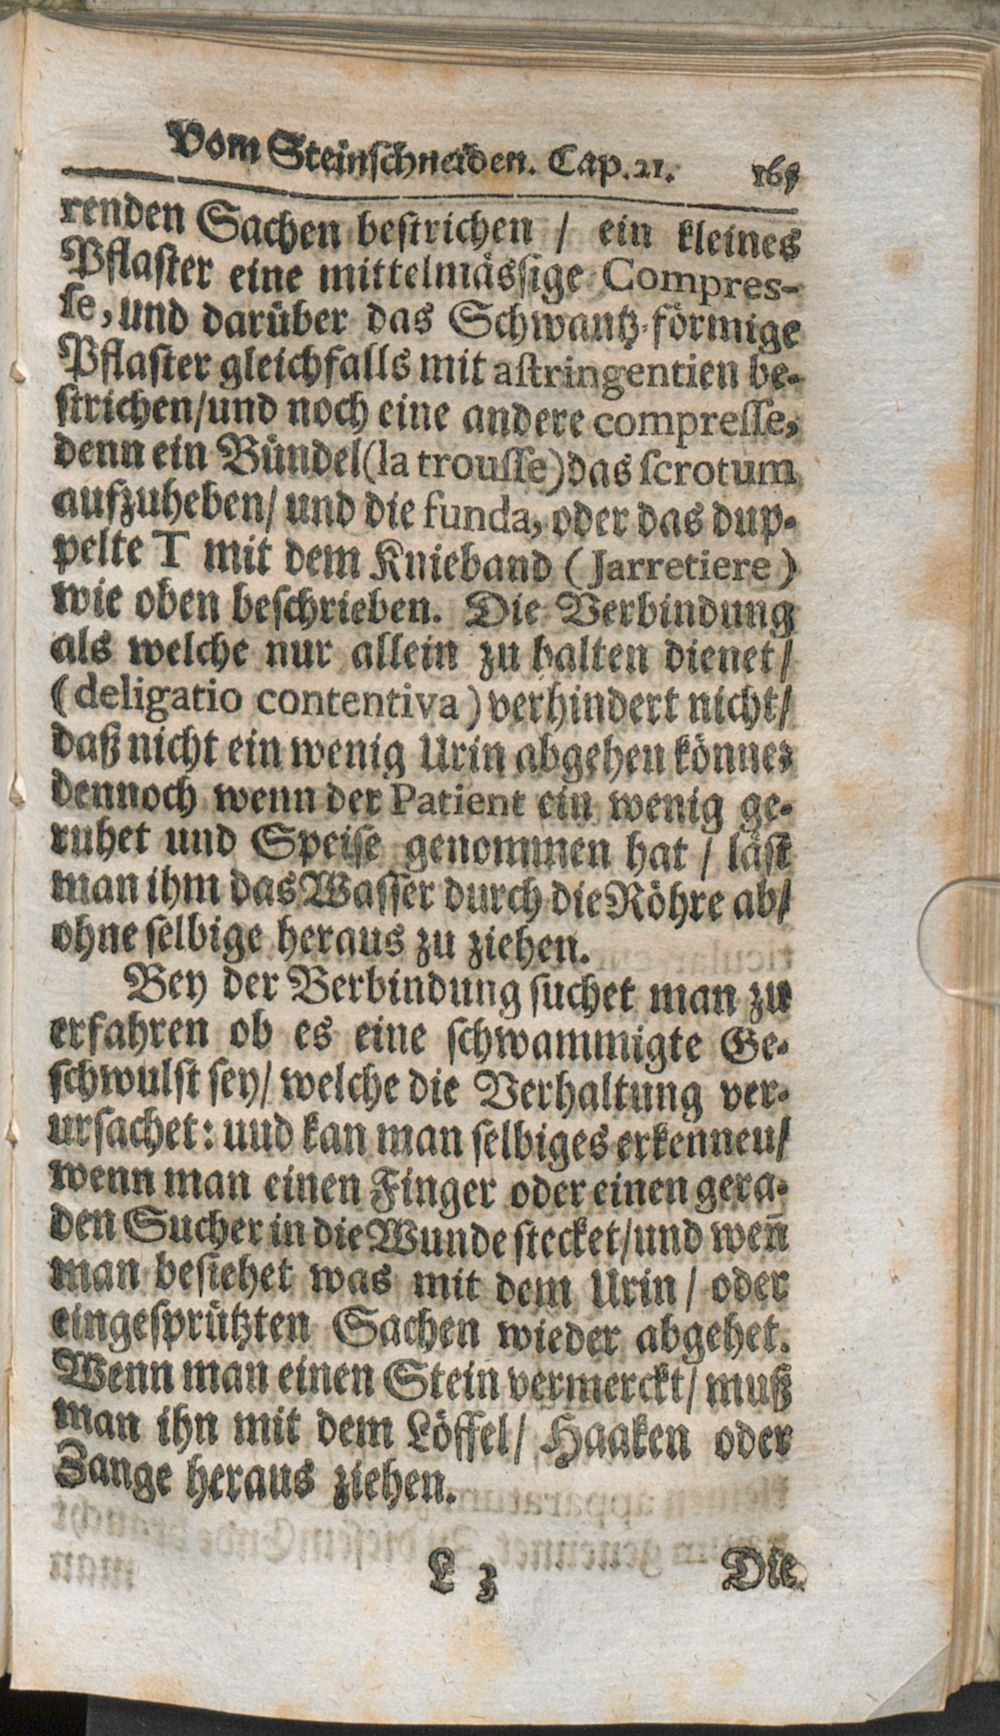 Vom Steinschneiden. Cap. 21. 165
renden Sachen bestrichen / ein kleines
Pflaster eine mittelmässige Compres-
se, und darüber das Schwantz-förmige
Pflaster gleichfalls mit astringentien be-
strichen/und noch eine andere compresse,
denn ein Bündel(la trousse)das scrotum
aufzuheben/ und die funda, oder das dup-
pelte T mit dem Knieband (Jarretiere)
wie oben beschrieben. Die Verbindung
als welche nur allein zu halten dienet/
(deligatio contentiva) verhindert nicht/
daß nicht ein wenig Urin abgehen könne;
dennoch wenn der Patient ein wenig ge-
ruhet und Speise genommen hat / läst
man ihm das Wasser durch die Röhre ab/
ohne selbige heraus zu ziehen.
Bey der Verbindung suchet man zu
erfahren ob es eine schwammigte Ge-
schwulst sey/ welche die Verhaltung ver-
ursachet: uud kan man selbiges erkenneu/
wenn man einen Finger oder einen gera-
den Sucher in die Wunde stecket/und weñ
man besiehet was mit dem Urin / oder
eingesprützten Sachen wieder abgehet.
Wenn man einen Stein vermerckt/ muß
man ihn mit dem Löffel/ Haaken oder
Zange heraus ziehen.
L 3 Die